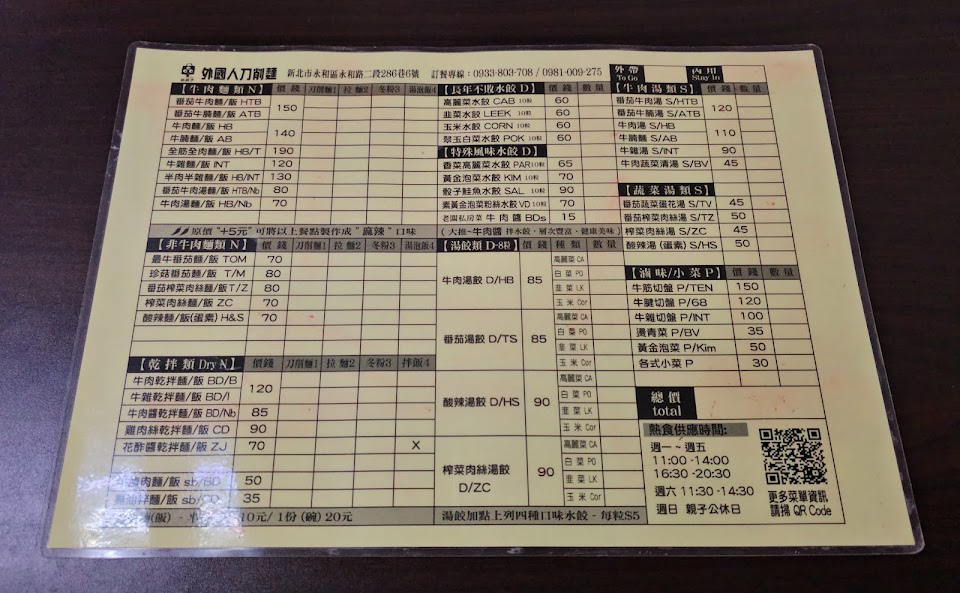 外國人刀削麵 新北市永和區永和路二段286巷6號 訂餐專線：0933-803-708 / 0981-009-275
外帶 To Go 內用 Stay In
【牛肉麵類N】 價錢 刀削麵1 拉麵2 冬粉3 湯泡飯4
番茄牛肉麵/飯 HTB 150
番茄牛腩麵/飯 ATB
牛肉麵/飯 HB 140
牛腩麵/飯 AB
全筋全肉麵/飯 HB/T 190
牛雜麵/飯 INT 120
半肉半雜麵/飯 HB/INT 130
番茄牛肉湯麵/飯 HTB/Nb 80
牛肉湯麵/飯 HB/Nb 70
原價 "+5元" 可將以上餐點製作成 "麻辣" 口味
【非牛肉麵類 N】 價錢 刀削麵1 拉麵2 冬粉3 湯泡飯4
最牛番茄麵/飯 TOM 70
珍菇番茄麵/飯 T/M 80
番茄榨菜肉絲麵/飯T/Z 80
榨菜肉絲麵/飯 ZC 70
酸辣麵/飯(蛋素) H&S 70
【乾拌類 Dry N】 價錢 刀削麵1 拉麵2 冬粉3 拌飯4
牛肉乾拌麵/飯 BD/B 120
牛雜乾拌麵/飯 BD/I
牛肉醬乾拌麵/飯 BD/Nb 85
雞肉絲乾拌麵/飯 CD 90
花酢醬乾拌麵/飯 ZJ 70 X
肉麵/飯 sb/BD 50
麵/飯 sb/CD 35
(飯) - 10元/ 1份 (碗) 20元
【長年不敗水餃 D】 價錢 數量
高麗菜水餃 CAB 10粒 60
韭菜水餃 LEEK 10粒 60
玉米水餃 CORN 10粒 60
翠玉白菜水餃 POK 10粒 60
【特殊風味水餃 D】
香菜高麗菜水餃 PAR10粒 65
黃金泡菜水餃 KIM 10粒 70
骰子鮭魚水餃 SAL 10粒 90
素黃金泡菜粉絲水餃VD 10粒 70
老闆私房菜 牛肉醬 BDs 15
(大推~牛肉醬 拌水餃，層次豐富，健康美味)
【湯餃類 D-8粒】 價錢 種類 數量
牛肉湯餃 D/HB 85
高麗菜 CA
白菜 PO
韭菜 LK
玉米 Cor
番茄湯餃 D/TS 85
高麗菜 CA
白菜 PO
韭菜 LK
玉米 Cor
酸辣湯餃 D/HS 90
高麗菜 CA
白菜 PO
韭菜 LK
玉米 Cor
榨菜肉絲湯餃 D/ZC 90
高麗菜 CA
白菜 PO
韭菜 LK
玉米 Cor
湯餃加點上列四種口味水餃 - 每粒$5
【牛肉湯類 S】 價錢 數量
番茄牛肉湯 S/HTB 120
番茄牛腩湯 S/ATB
牛肉湯 S/HB 110
牛腩湯 S/AB
牛雜湯 S/INT 90
牛肉蔬菜清湯 S/BV 45
【蔬菜湯類 S】
番茄蔬菜蛋花湯 S/TV 45
番茄榨菜肉絲湯 S/TZ 50
榨菜肉絲湯 S/ZC 45
酸辣湯 (蛋素) S/HS 50
【滷味/小菜 P】 價錢 數量
牛筋切盤 P/TEN 150
牛腱切盤 P/68 120
牛雜切盤 P/INT 100
燙青菜 P/BV 35
黃金泡菜 P/Kim 50
各式小菜 P 30
總價 total
熱食供應時間:
週一 ~ 週五
11:00 -14:00
16:30 -20:30
週六 11:30 -14:30
週日 親子公休日
更多菜單資訊
請掃 QR Code